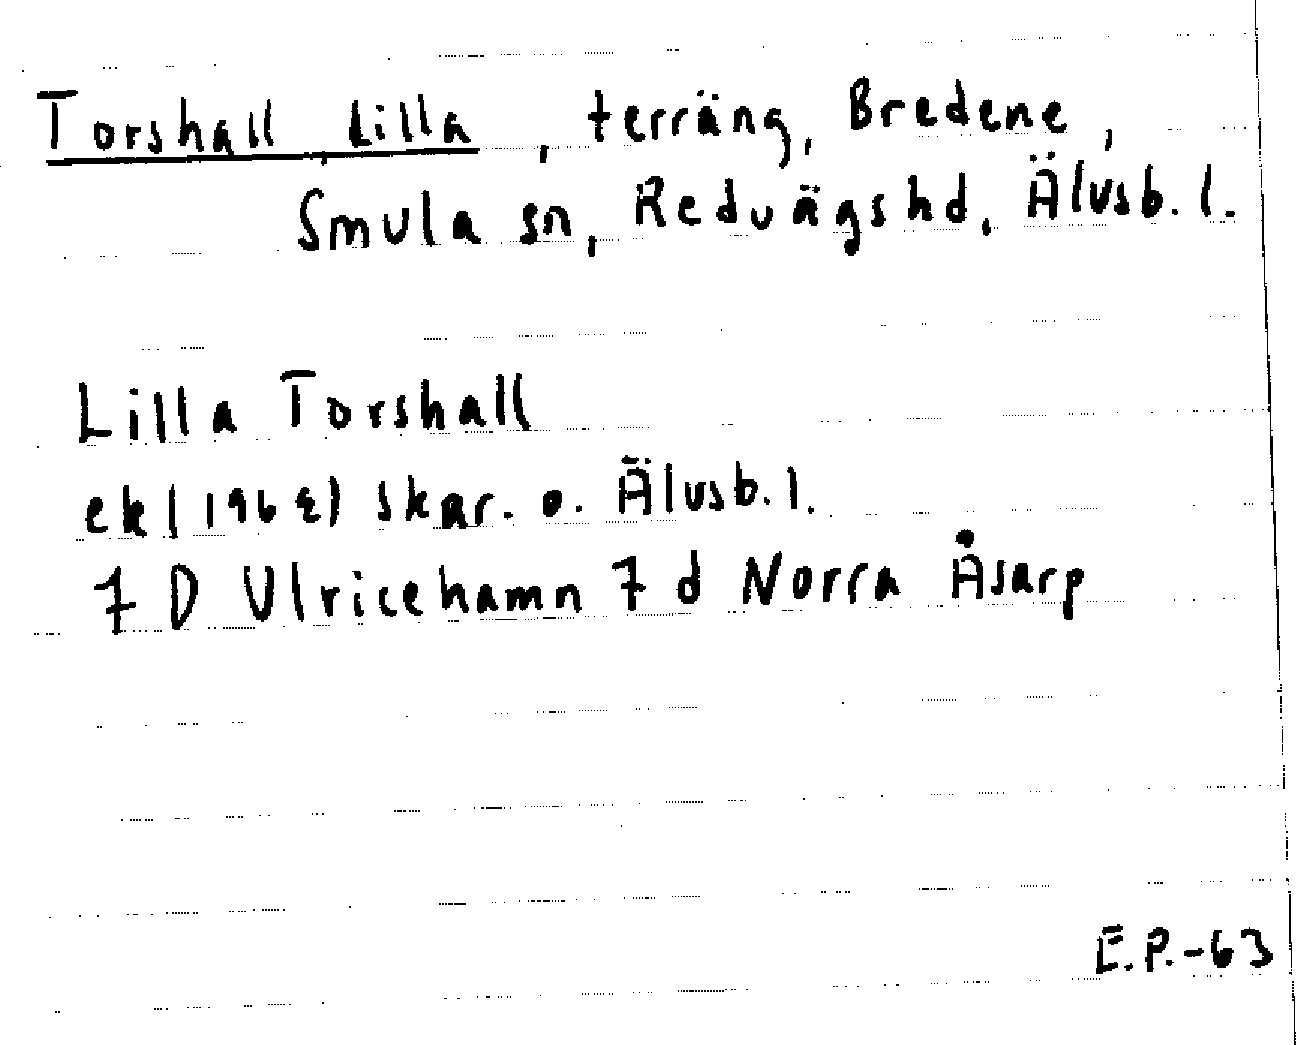 Torshall, Lilla, terräng, Bredene,
Smula sn, Redvägs hd, Älvsb. l.
Lilla Torshall
ek (1962) skar. o. Älvsb. l.
7 D Ulricehamn 7 d Norra Åsarp
E.P.-63